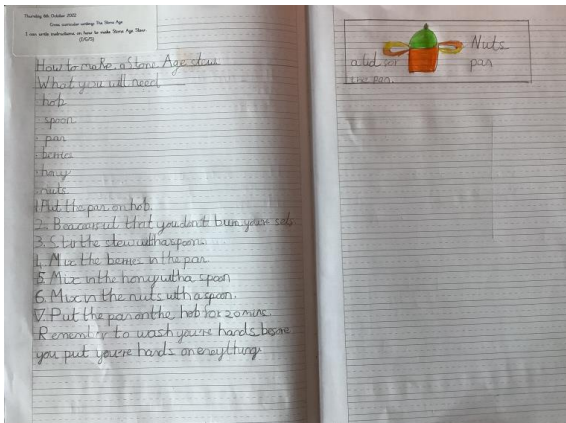 Thursday 6th October 2022
Cross curricular writing: The Stone Age
I can write instructions on how to make Stone Age Stew.
How to make a stone Age stew
What you will need
hob
spoon
pan
berries
hony
nuts
1. Put the pan on hob.
2. Beacarful that you don't burn youre self.
3. Stir the stew with a spoon.
4. Mix the berries in the pan
5. Mix in the hony with a spoon
6. Mix in the nuts with a spoon.
7. Put the pan on the hob for 20 mins
Remember to wash you're hands before
you put you're hands on eneything.
Nuts
a lid for
pan
the pan.